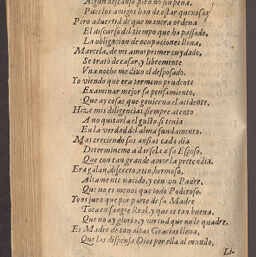 Algun descanso pero no sin pena,
Pues los amigos han de estar quexosos
Pero aduertid de que manera ordena
El discurso del tiempo que ha passado,
La obligacion de ocupaciones llena,
Marcela, de mi amor primer cuydado,
Se trato de casar, y libremente
Vna noche me dixo el desposado.
Yo viendo que era termino prudente
Examinar mejor su pensamiento,
Que ay cosas que gouierna el acidente,
Hize mis diligencias, siempre atento
A no quitarla el gusto si tenia
En la verdad del alma fundamento.
Mas creciendo sus ansias cada dia
Determineme a darsele a su Esposo,
Que con tan grande amor la pretendia.
Era galan, discreto, rico, hermoso,
Altamente nacido, y con un Padre,
Que no es menos que todo Poderoso.
Tan puro que por parte de su Madre
Toca en sangre Real, y que es tan buena,
Que no ay gloria, y virtud que no le quadre.
Es Madre de tan altas Gracias llena,
Que las dispensa Dios por ella al mundo,